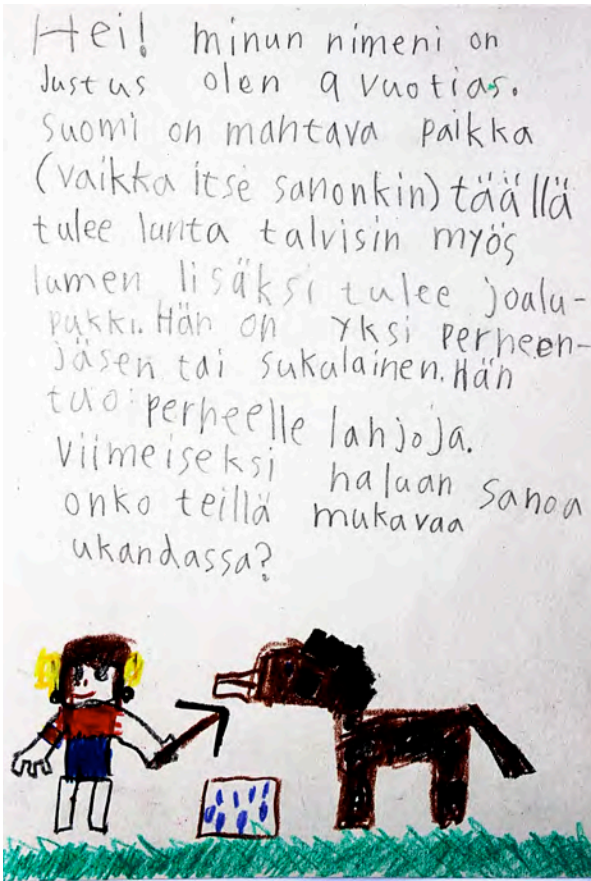 Hei! minun nimeni on
Justus olen 9 vuotias.
Suomi on mahtava paikka
(vaikka itse sanonkin) täällä
tulee lunta talvisin myös
lumen lisäksi tulee joalu-
pukki. Hän on yksi perheen-
jäsen tai sukulainen. Hän
tuo perheelle lahjoja.
viimeiseksi haluan sanoa
onko teillä mukavaa
ukandassa?